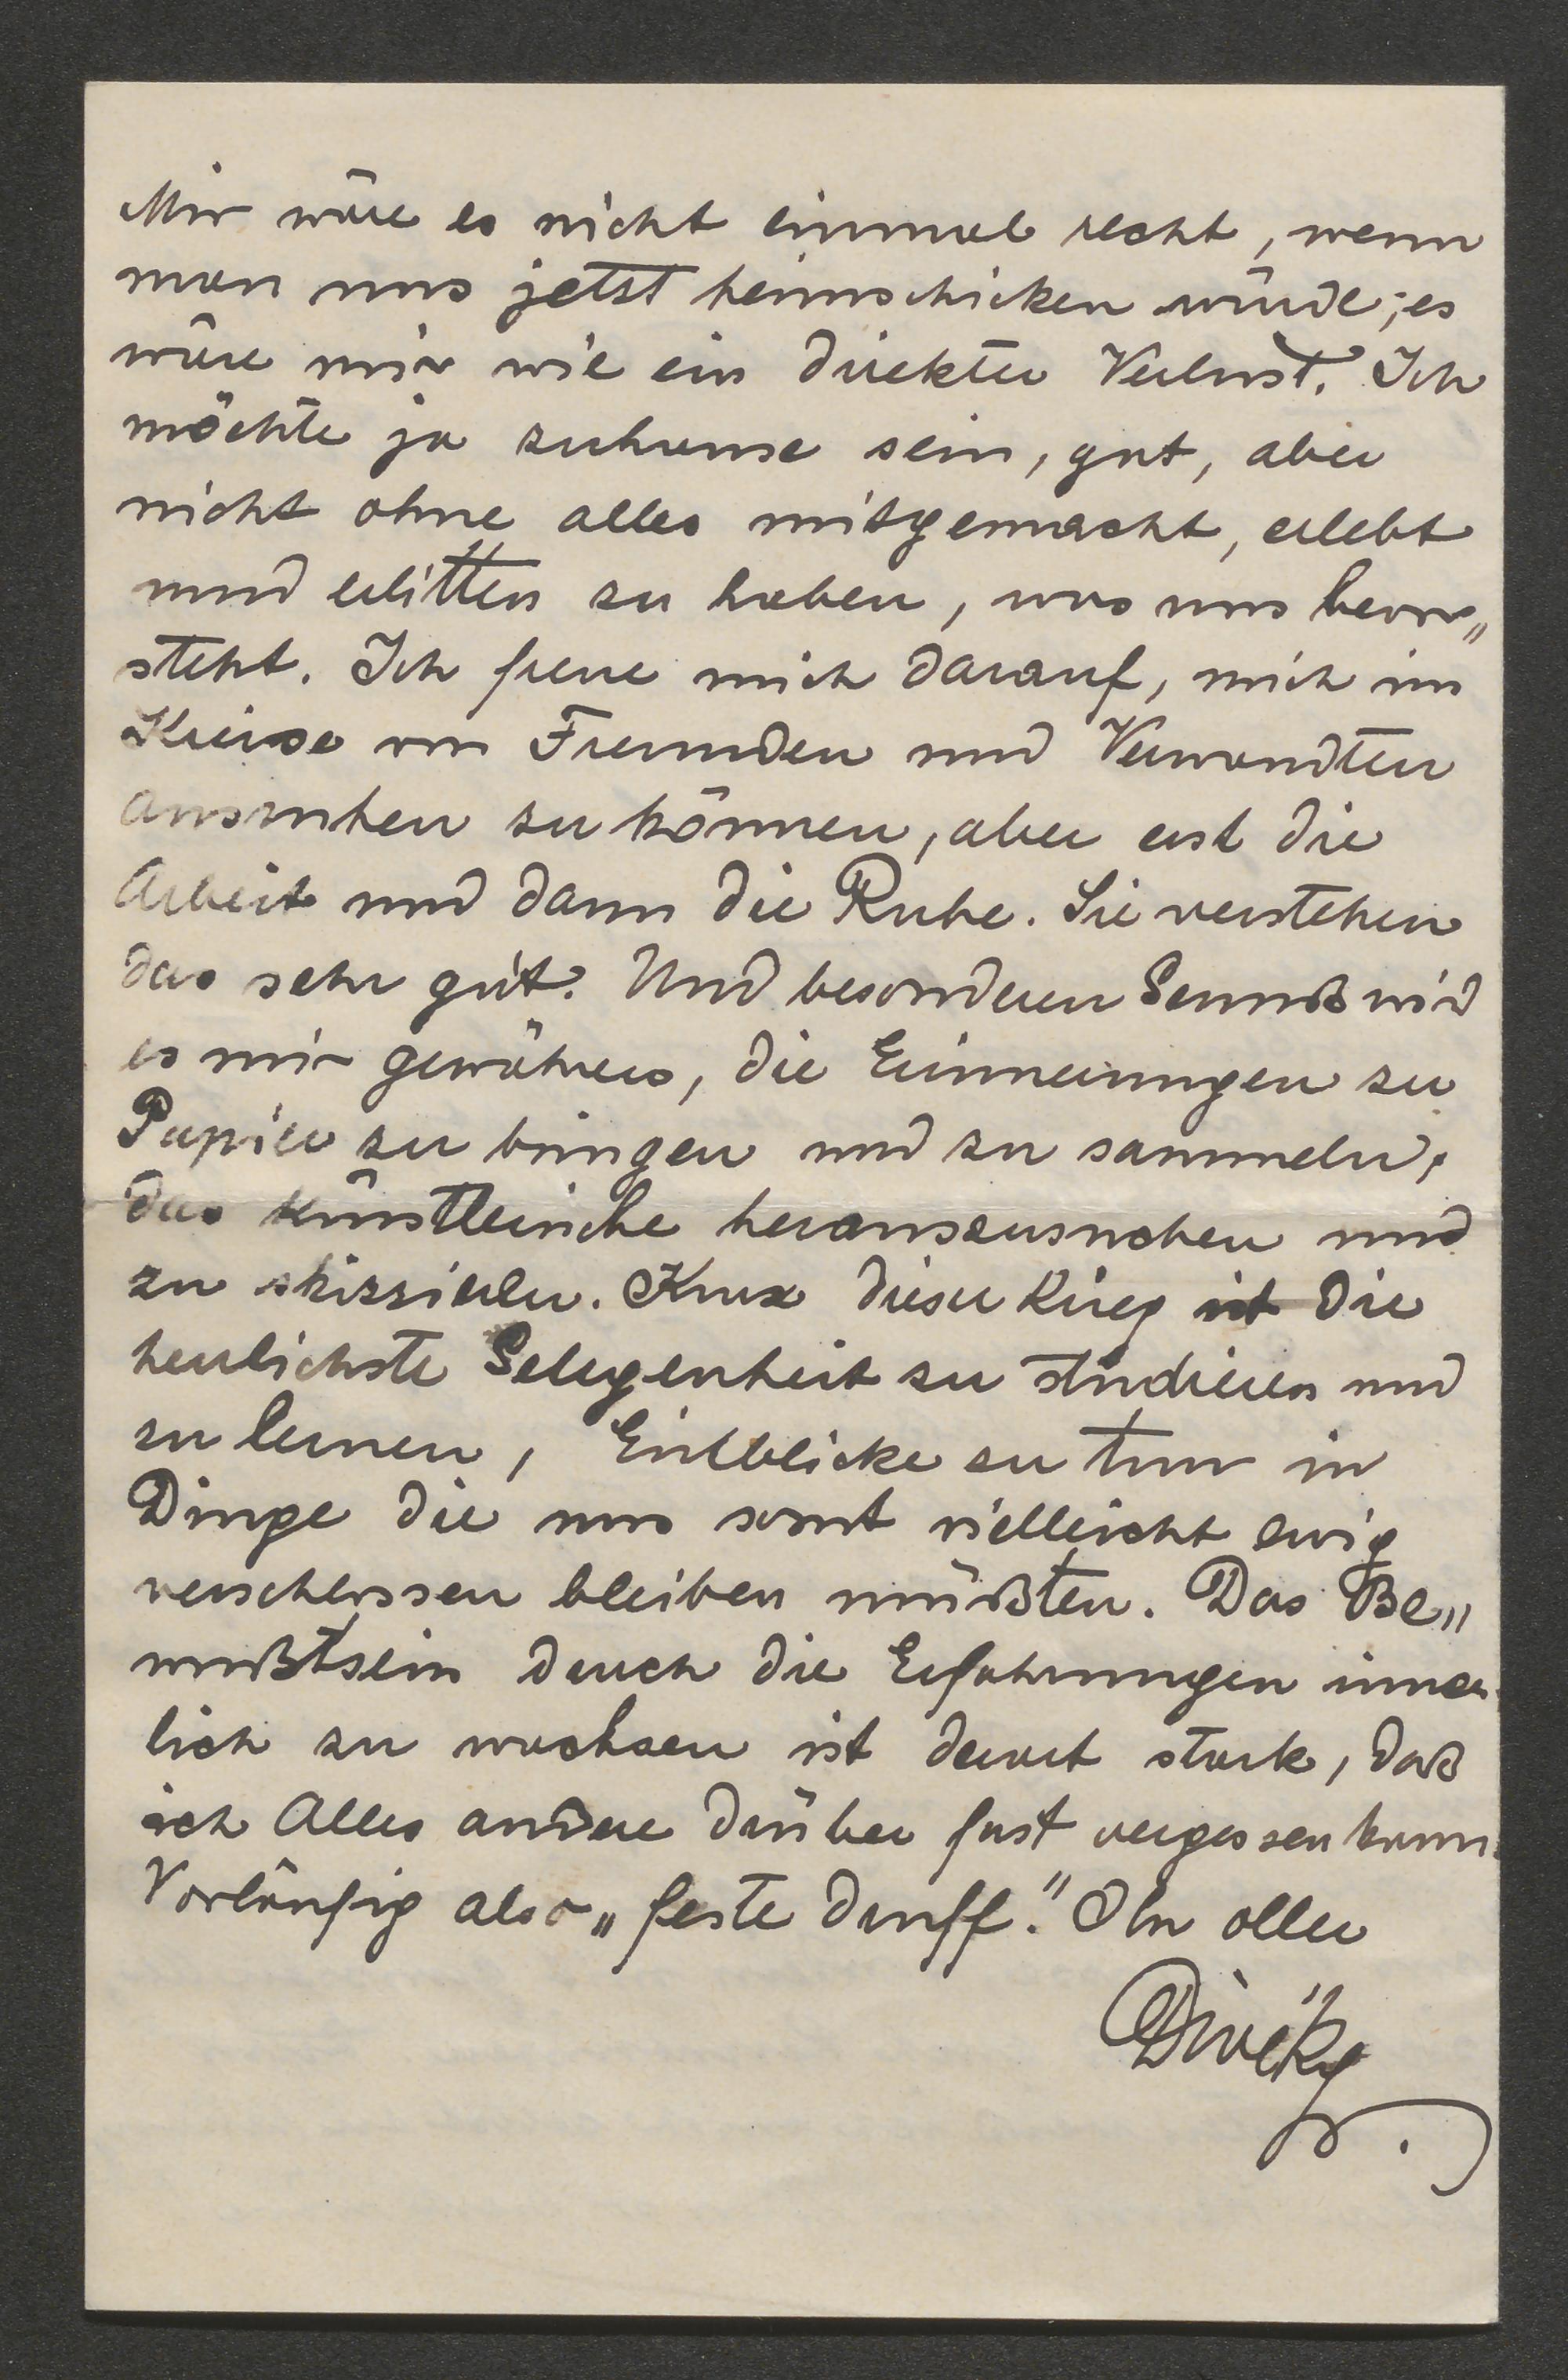 Mir wäre es nicht einmal recht, wenn
man uns jetzt heimschicken würde; es
wäre mir wie ein direkter Verlust. Ich
möchte ja zuhause sein, gut, aber
nicht ohne alles mitgemacht, erlebt
und erlitten zu haben, was uns bevor„
steht. Ich freue mich darauf, mich im
Kreise von Freunden und Verwandten
ausruhen zu können, aber erst die
Arbeit und dann die Ruhe. Sie verstehen
das sehr gut. Und besonderen Genuß wird
es mir gewähren, die Erinnerungen zu
Papier zu bringen und zu sammeln,
das künstlerische herauszusuchen und
zu skizzieren. Kurz dieser Krieg ist die
herrlichste Gelegenheit zu studieren und
zu lernen, Einblicke zu tun in
Dinge die uns sonst vielleicht ewig
verschlossen bleiben müßten. Das Be„
wußtsein durch die Erfahrungen inner-
lich zu wachsen ist derart stark, daß
ich Alles andere drüber fast vergessen kann.
Vorläufig also „feste druff." Ihr oller